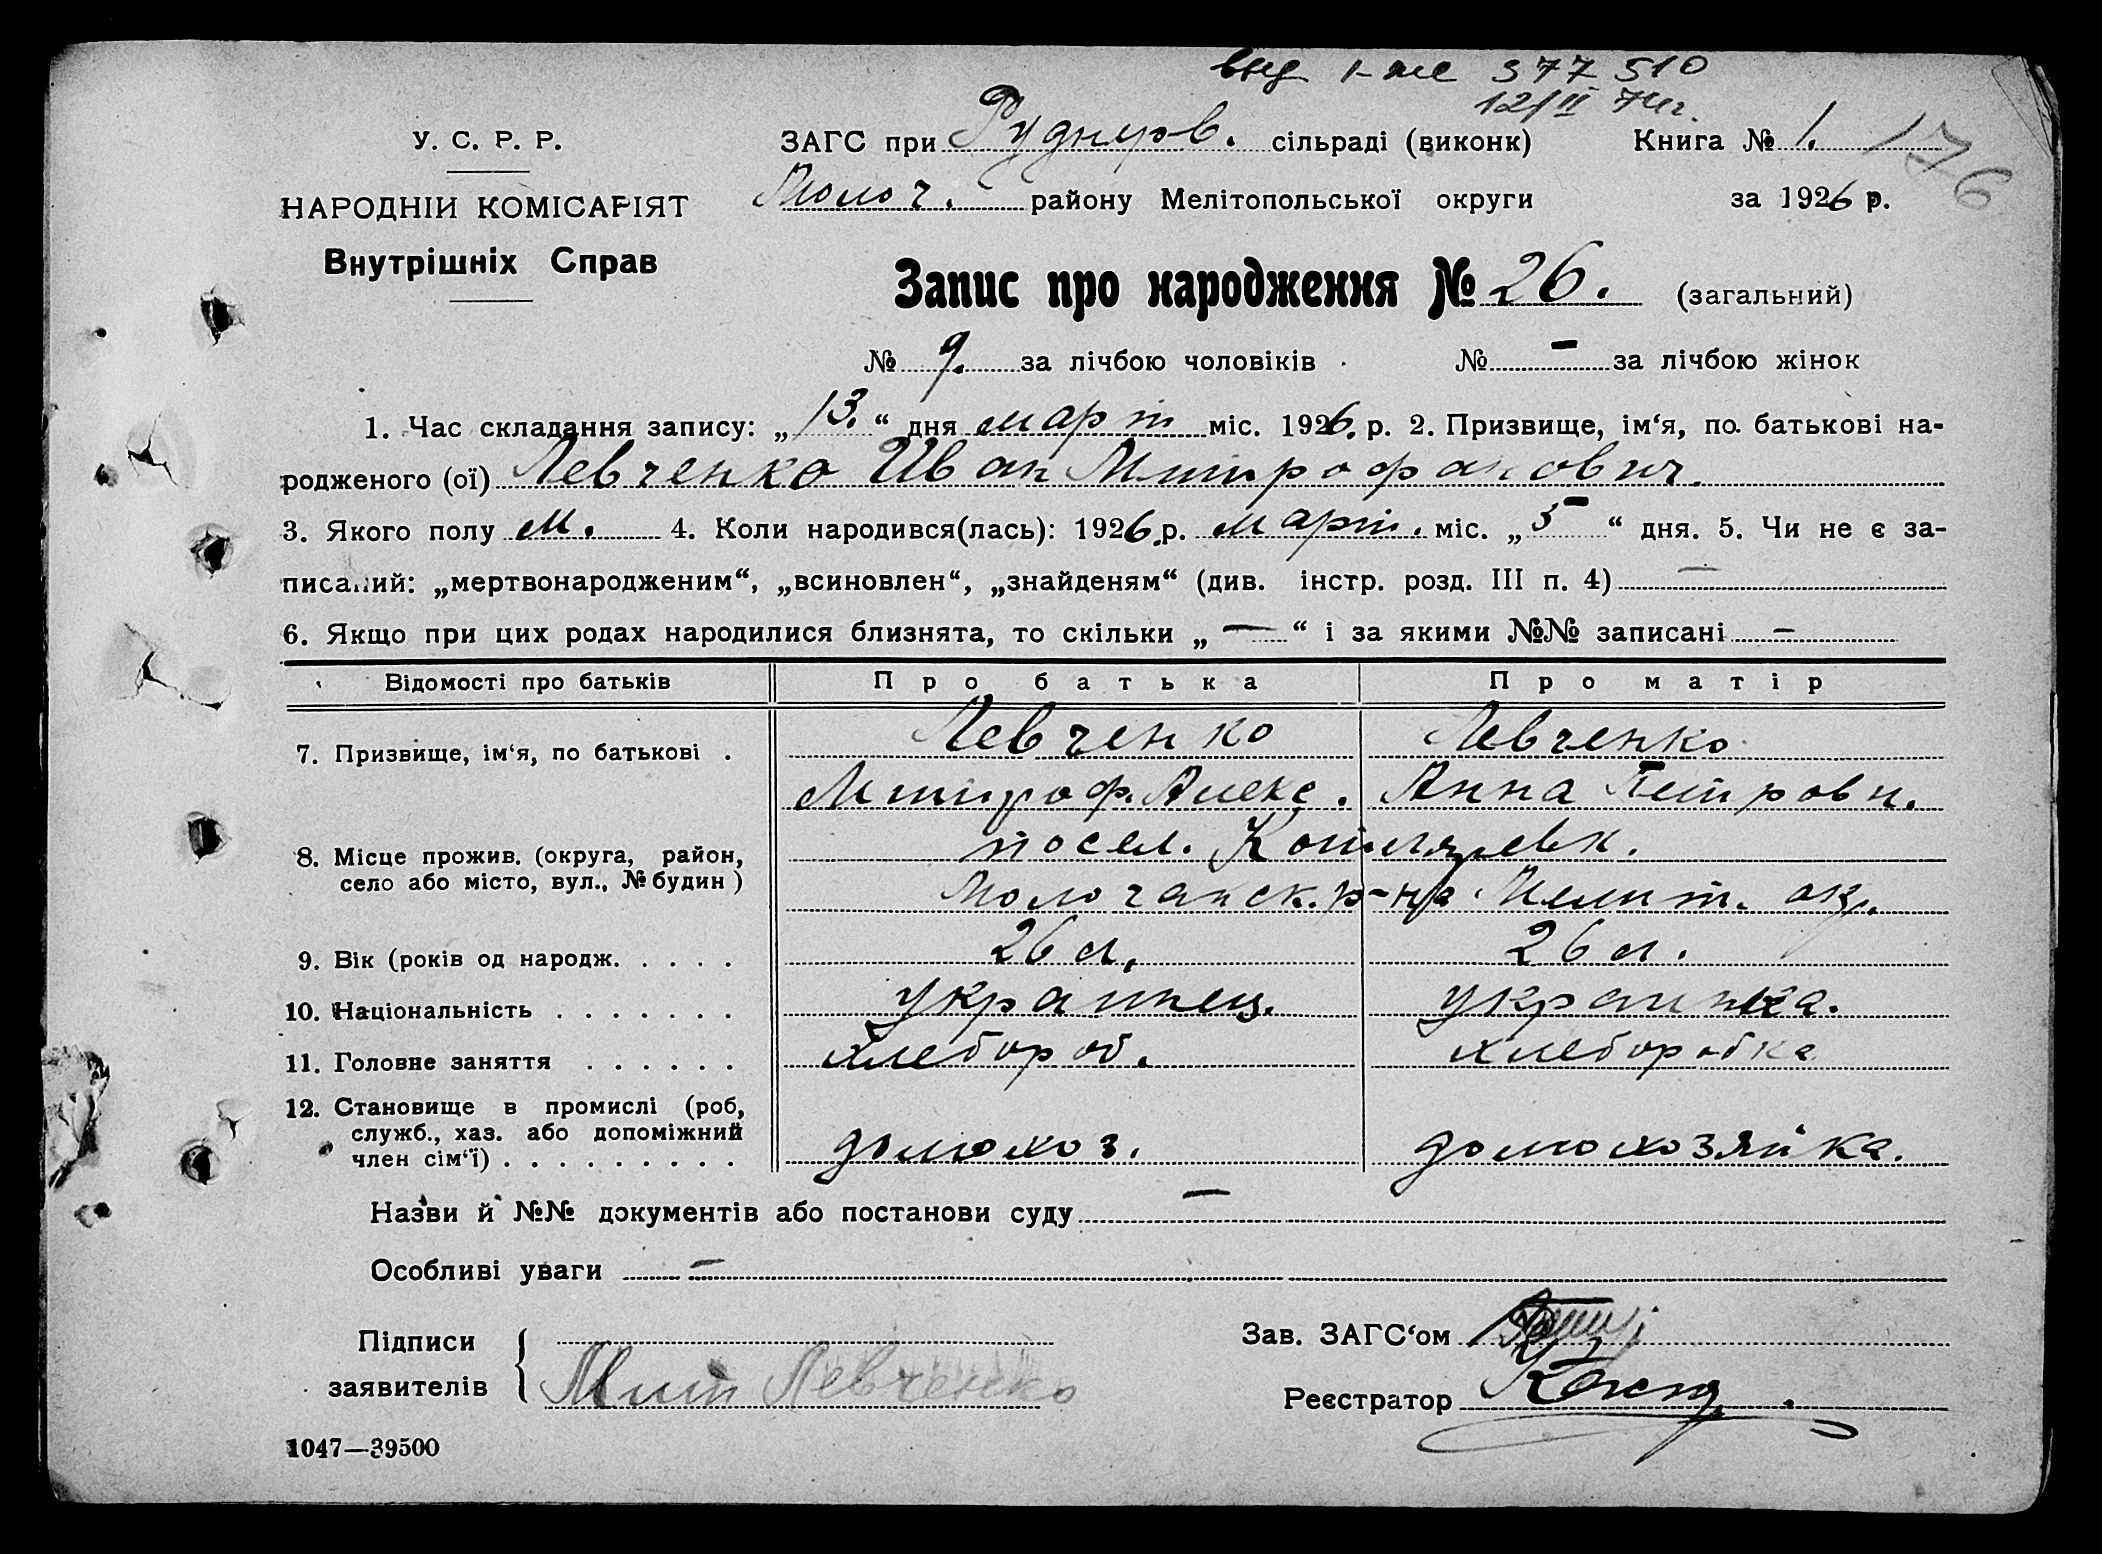 выд I-жс 377510
12/II 74г.
У. С. Р. Р.
НАРОДНІЙ КОМІСАРІЯТ
Внутрішніх Справ
ЗАГС при Руднеров. сільраді (виконк)
Молоч. району Мелітопольської округи
Книга № 1. 176
за 1926 р.
Запис про народження № 26. (загальний)
№ 9. за лічбою чоловіків № – за лічбою жінок
1. Час складання запису: „13.“ дня март міс. 1926. р. 2. Призвище, ім‘я, по батькові на-
родженого (ої) Левченко Иван Митрофанович.
3. Якого полу м. 4. Коли народився(лась): 1926.р. март. міс. „5“ дня. 5. Чи не є за-
писаний: „мертвонародженим“, „всиновлен“, „знайденям“ (див. інстр. розд. III п. 4) —
6. Якщо при цих родах народилися близнята, то скільки „—“ і за якими №№ записані –
Відомості про батьків Про батька Про матір
7. Призвище, ім‘я, по батькові . Левченко Левченко
Митроф. Алекс. Анна Петровн.
8. Місце прожив. (округа, район, село або місто, вул., № будин) посел. Котляревк.
Молочанск. р-на Мелит. окр.
9. Вік (років од народж. . . . . 26 л. 26 л.
10. Національність . . . . . . . украинец. украинка.
11. Головне заняття . . . . . . хлебороб. хлеборобка
12. Становище в промислі (роб,
служб., хаз. або допоміжний
член сім‘ї) . . . . . . . . . домохоз. домохозяйка.
Назви й №№ документів або постанови суду —
Особливі уваги –
Підписи
заявителів Мит Левченко
Зав. ЗАГС‘ом
Реєстратор
1047—39500